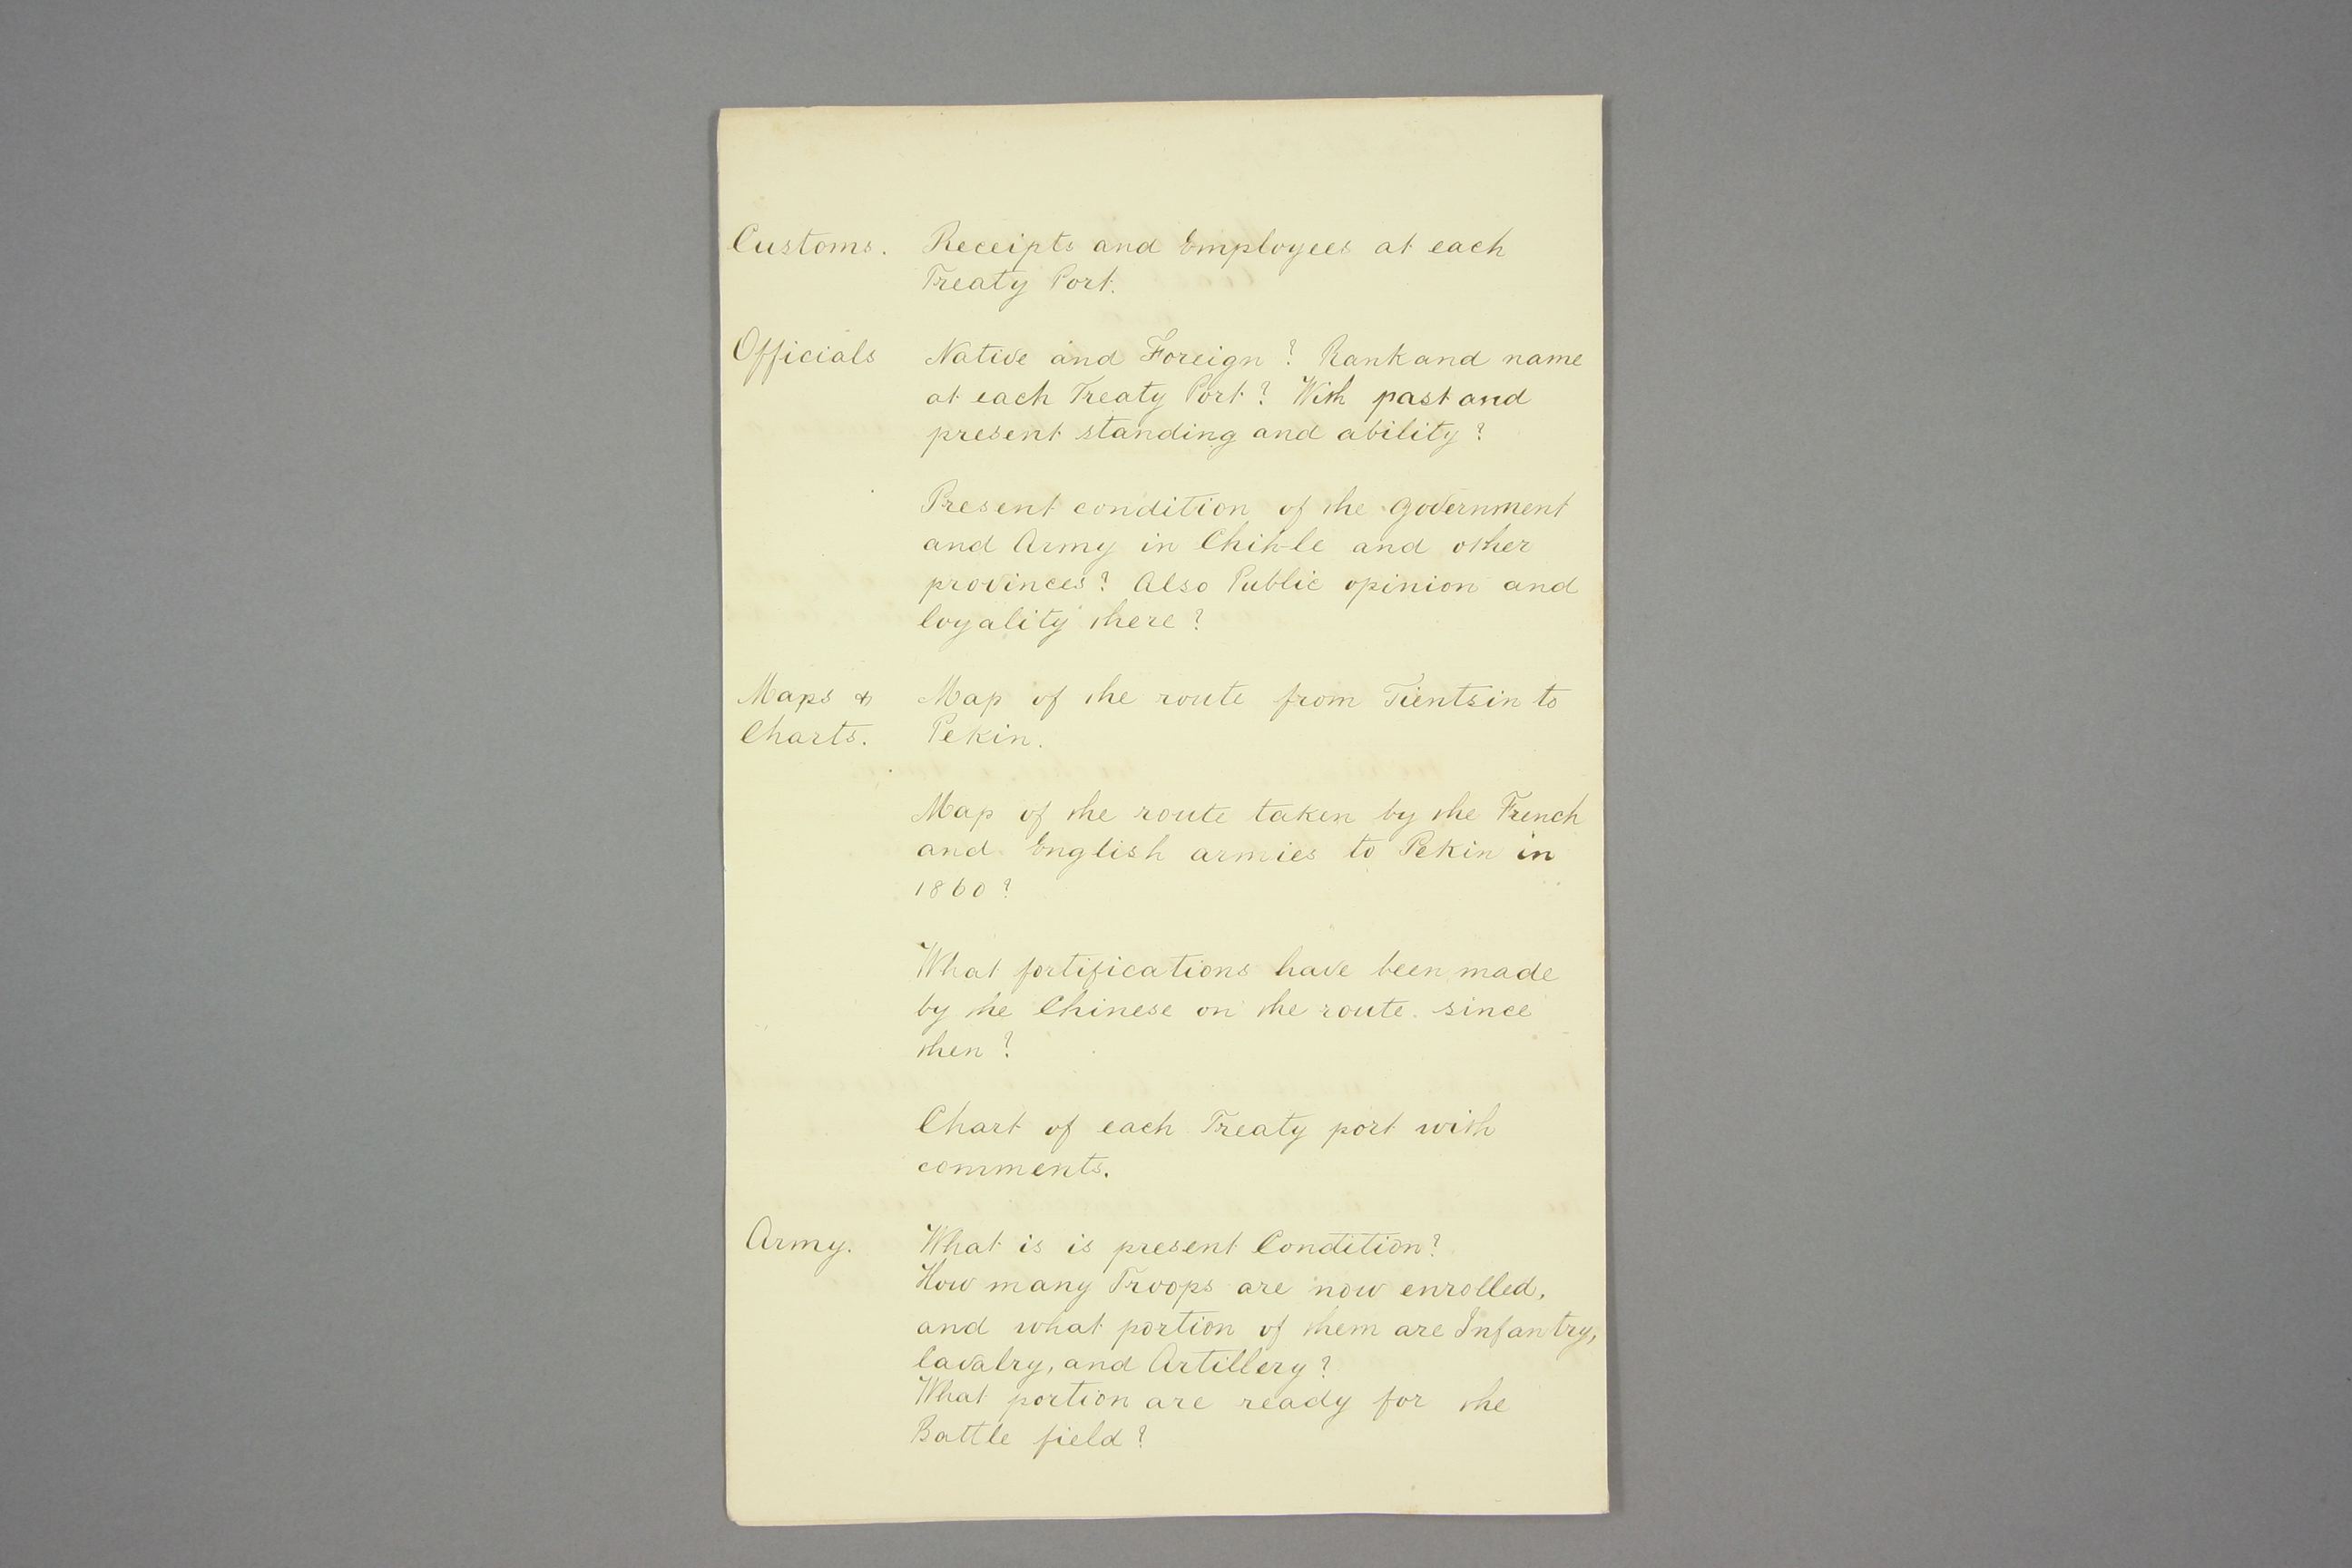 Customs. Receipts and Employees at each
Treaty Port.
Officials Native and Foreign? Rank and name
at each Treaty Port? With past and
present standing and ability?
Present condition of the government
and Army in Chih-le and other
provinces? Also Public opinion and
loyality there?
Maps & Map of the route from Tientsin to
Charts. Pekin.
Map of the route taken by the French
and English armies to Pekin in
1860?
What fortifications have been made
by the Chinese on the route. since
then?
Chart of each Treaty port with
comments.
Army. What is is present Condition?
How many Troops are now enrolled,
and what portion of them are Infantry,
Cavalry, and Artillery?
What portion are ready for the
Battle field?